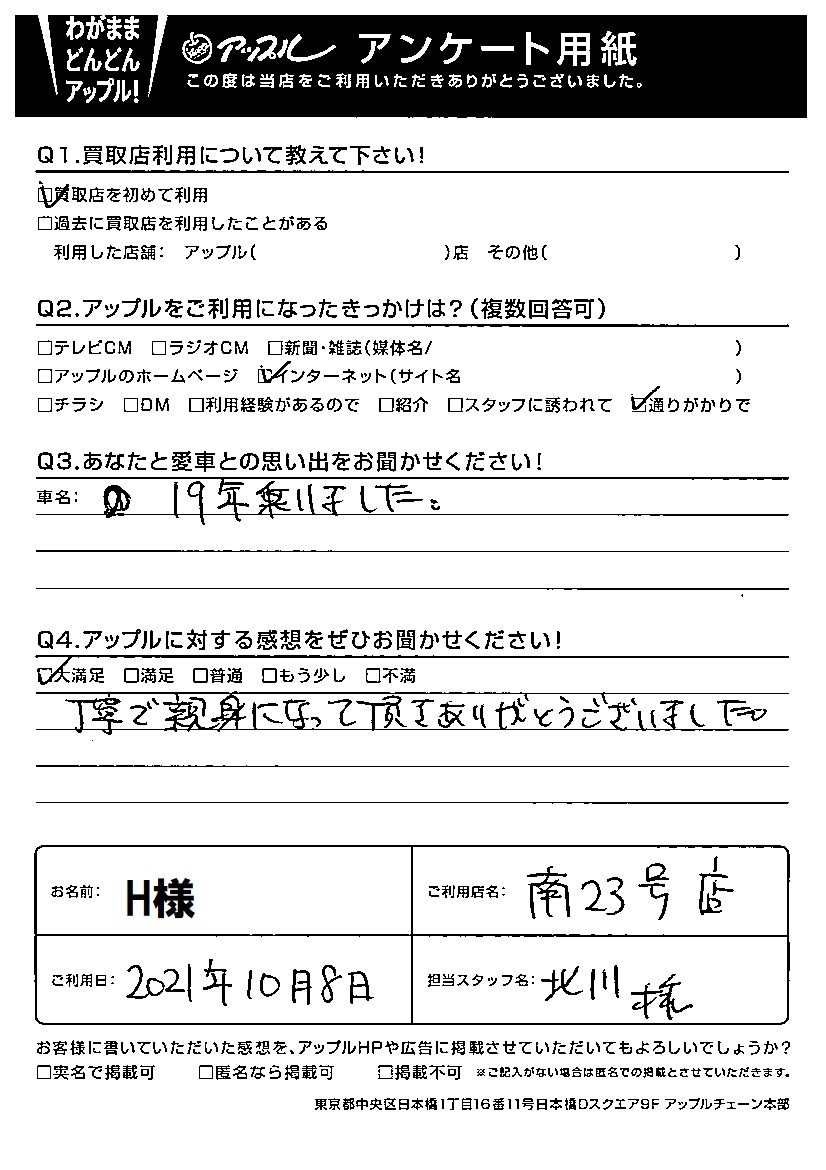 わがまま
どんどん
アップル!
アップル アンケート用紙
この度は当店をご利用いただきありがとうございました。
Q1.買取店利用について教えて下さい!
☑買取店を初めて利用
□過去に買取店を利用したことがある
利用した店舗: アップル( )店 その他( )
Q2.アップルをご利用になったきっかけは?(複数回答可)
□テレビCM □ラジオCM □新聞・雑誌(媒体名/ )
□アップルのホームページ ☑インターネット(サイト名 )
□チラシ □DM □利用経験があるので □紹介 □スタッフに誘われて ☑通りがかりで
Q3.あなたと愛車との思い出をお聞かせください!
車名: 19年乗りました。
Q4.アップルに対する感想をぜひお聞かせください!
☑大満足 □満足 □普通 □もう少し □不満
丁寧で親身になって頂きありがとうございました。
お名前: H様
ご利用店名: 南23号店
ご利用日: 2021年10月8日
担当スタッフ名: 北川様
お客様に書いていただいた感想を、アップルHPや広告に掲載させていただいてもよろしいでしょうか?
□実名で掲載可 □匿名なら掲載可 □掲載不可 ※ご記入がない場合は匿名での掲載とさせていただきます。
東京都中央区日本橋1丁目16番11号日本橋Dスクエア9F アップルチェーン本部